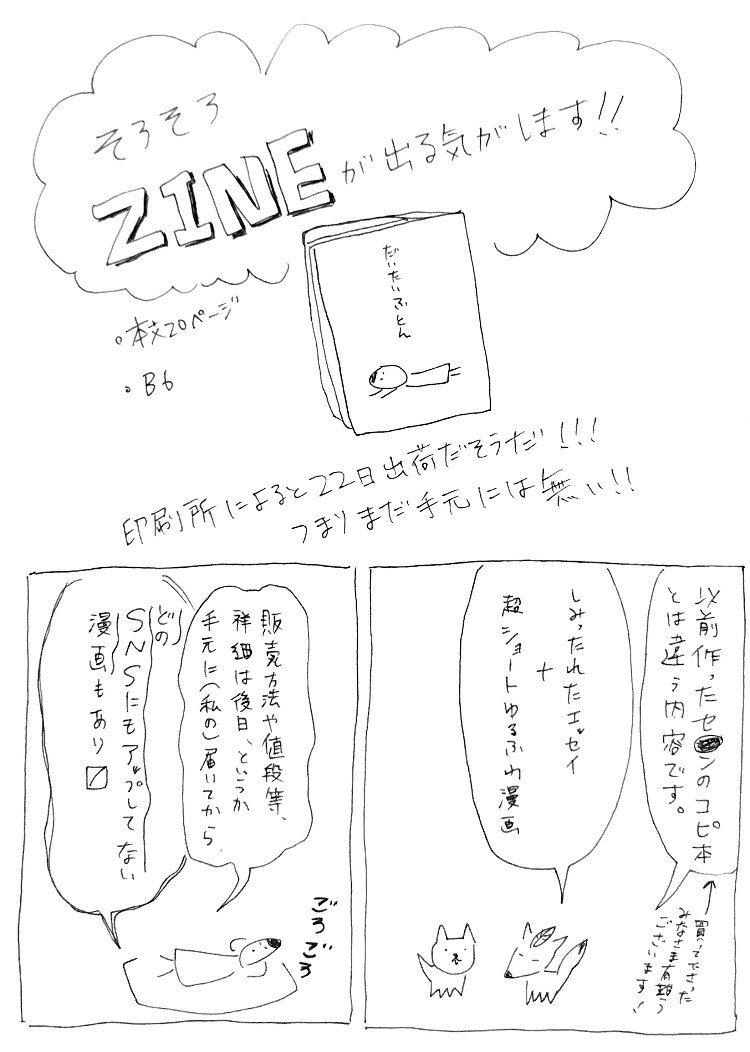 そろそろ
ZINEが出る気がします!!
だいたいふとん
・本文20ページ
・B6
印刷所によると22日出荷だそうだ!!!
つまりまだ手元には無い!!
以前作ったセ●ンのコピ本
とは違う内容です。
↑買って下さった
みなさま有難う
ございます!
しみったれたエッセイ
+
超ショートゆるふわ漫画
販売方法や値段等、
祥細は後日、というか
手元に(私の)届いてから
どの
SNSにもアップしてない
漫画もあり〼
ごろごろ